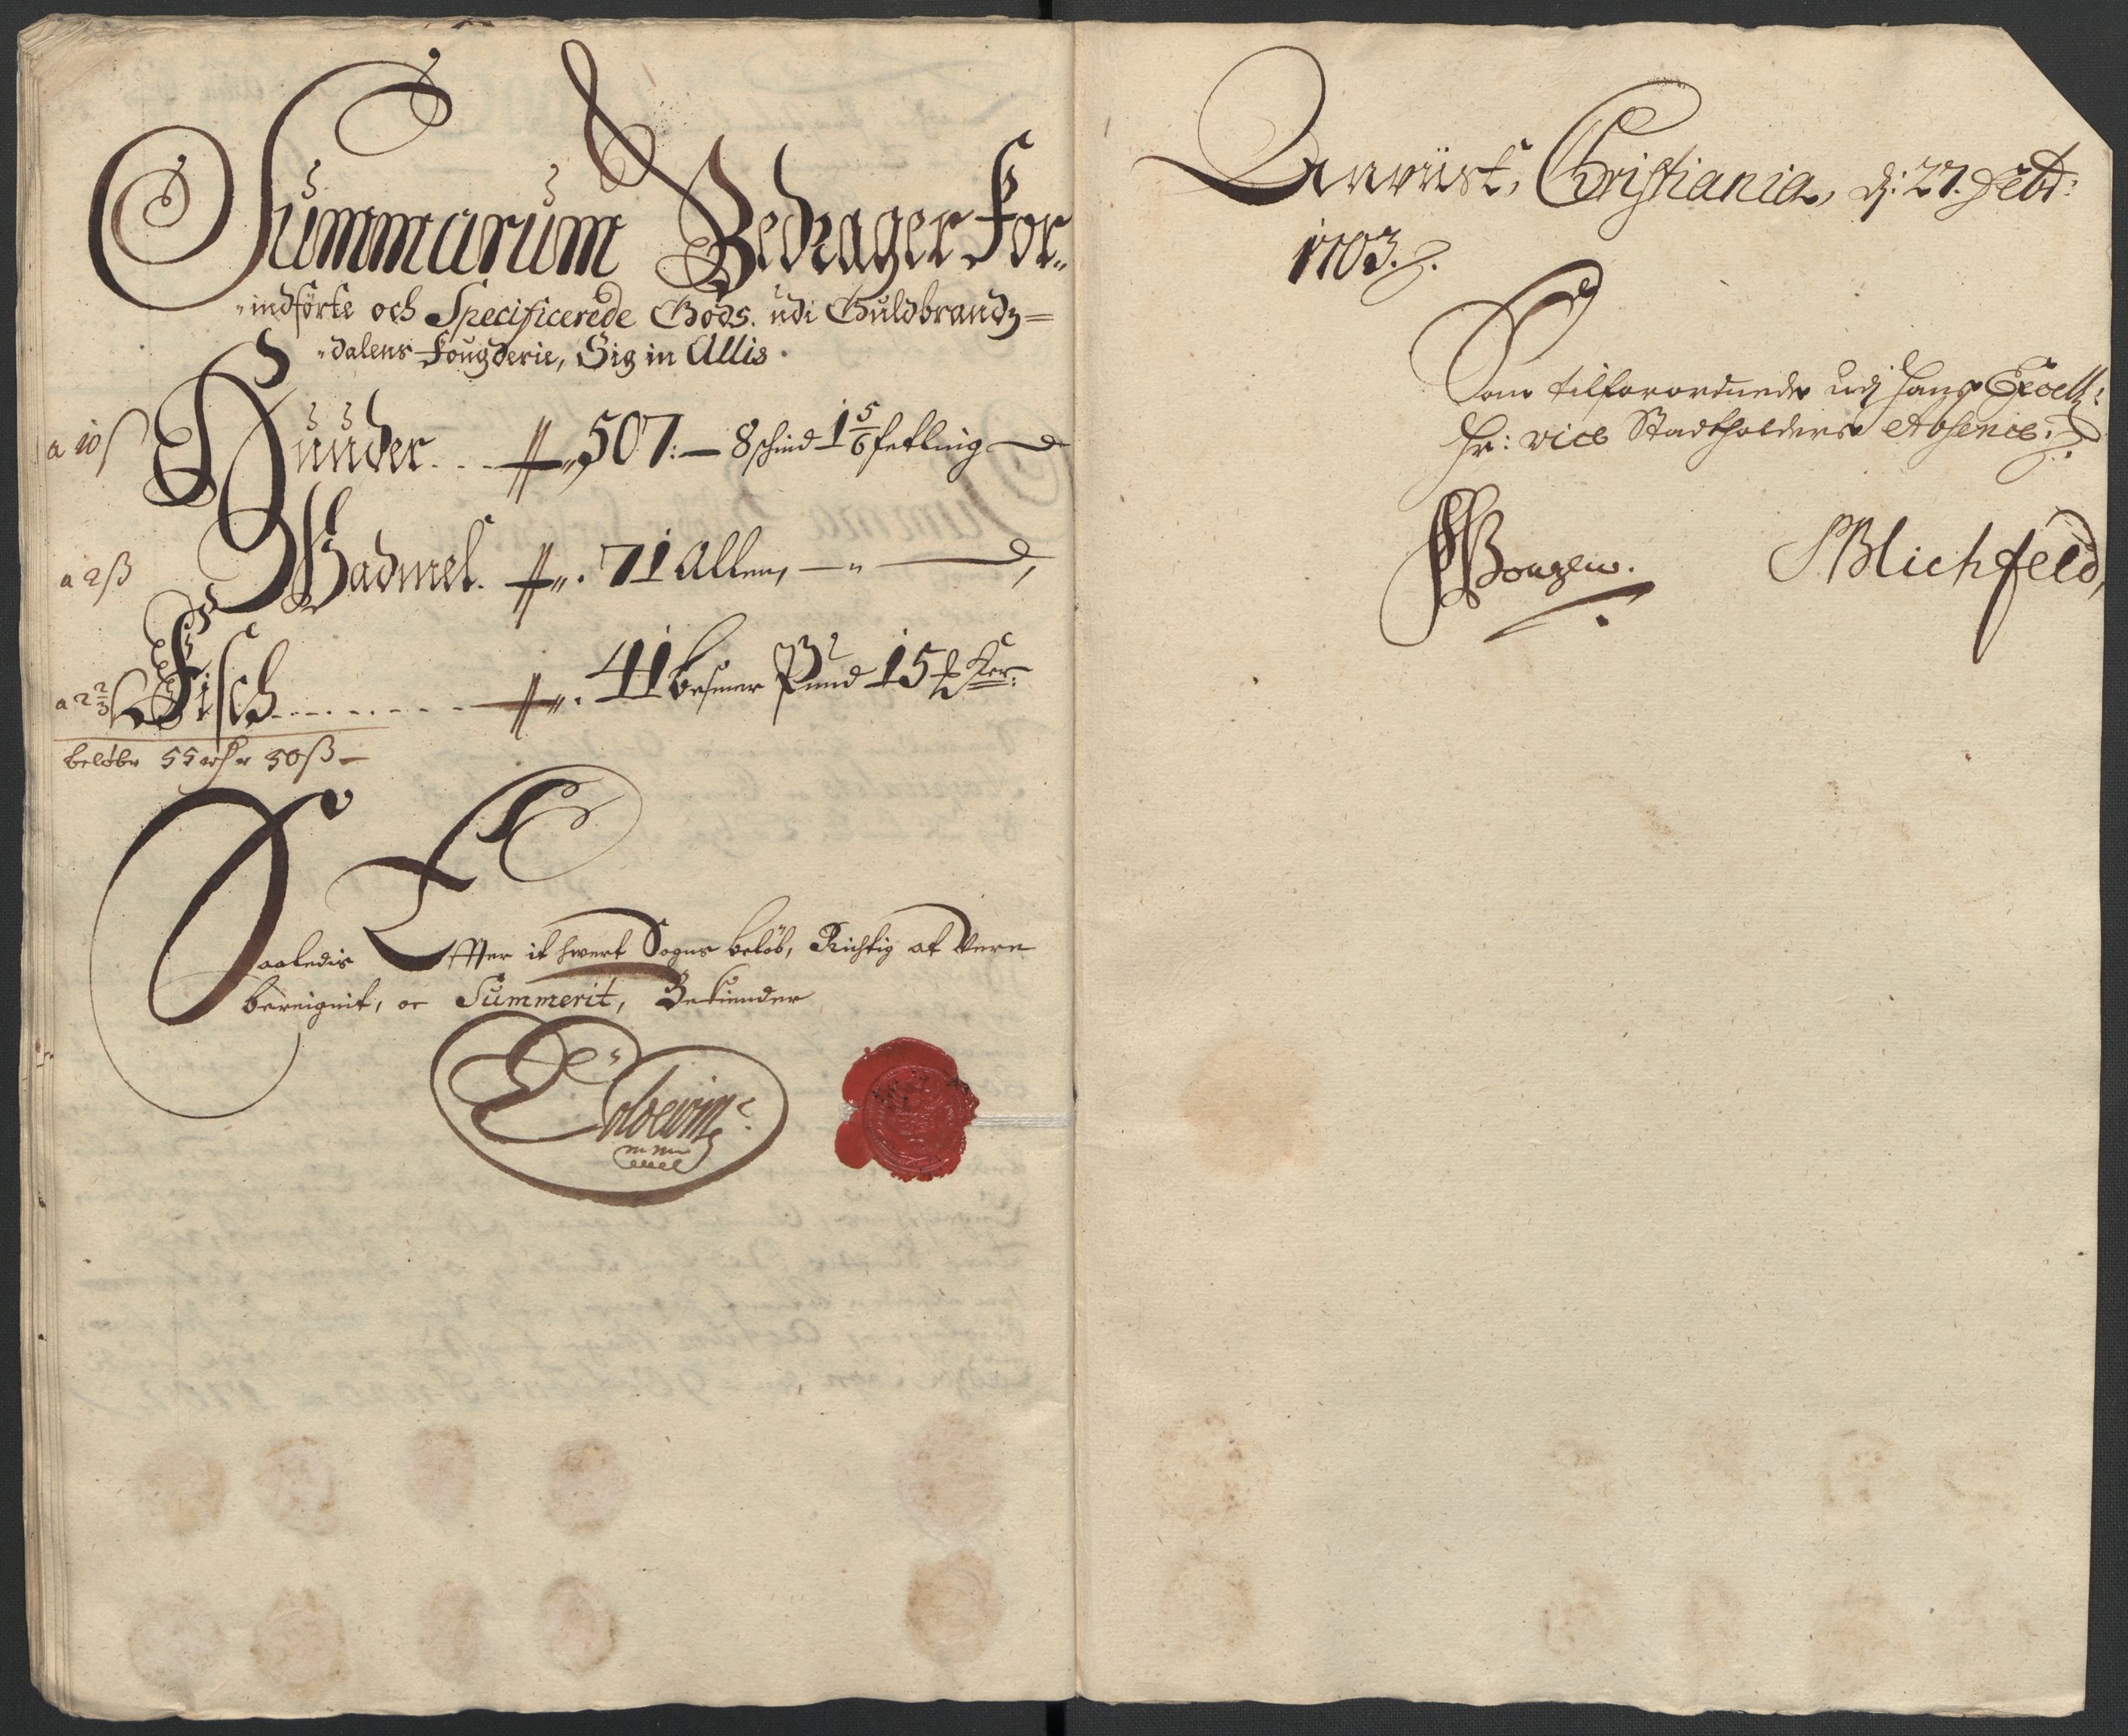 Summarum Bedrager For-
-indförte och Specificerede Gods. udi Guldbrandz=
-dalens Fougderie, Sig in Allis.
a 10 ß Huuder.... 507:— 8 skind 1 5/6 fetling
a 2 ß Wadmel. 71 Allen, —„—
a 2 2/3 ß Fisch........ 41 besmer Pund 15 Mker:
beløber 55 rdr 50 ß —
Saaledis Effter it hwert Sogns beløb, Richtig at Vere
bereignit, oc Summerit, Bekiender
mmp
Anviist, Christiania, d: 27. Febr:
1703.
Som tilforordnede udj Hans Excell:
Hr: vice Stadtholders Absence.
Blichfeld,